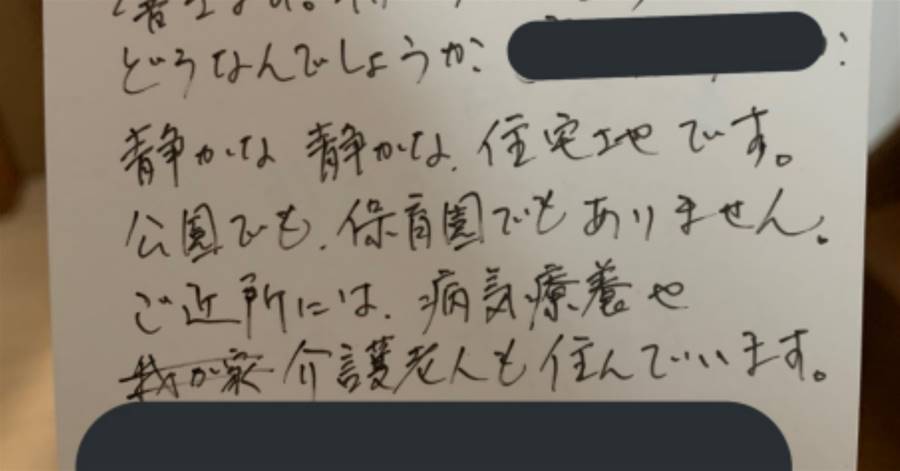 どうなんでしょうか:
静かな 静かな、住宅地です。
公園でも、保育園でもありません。
ご近所には、病気療養や
我が家 介護老人も住んでいます。